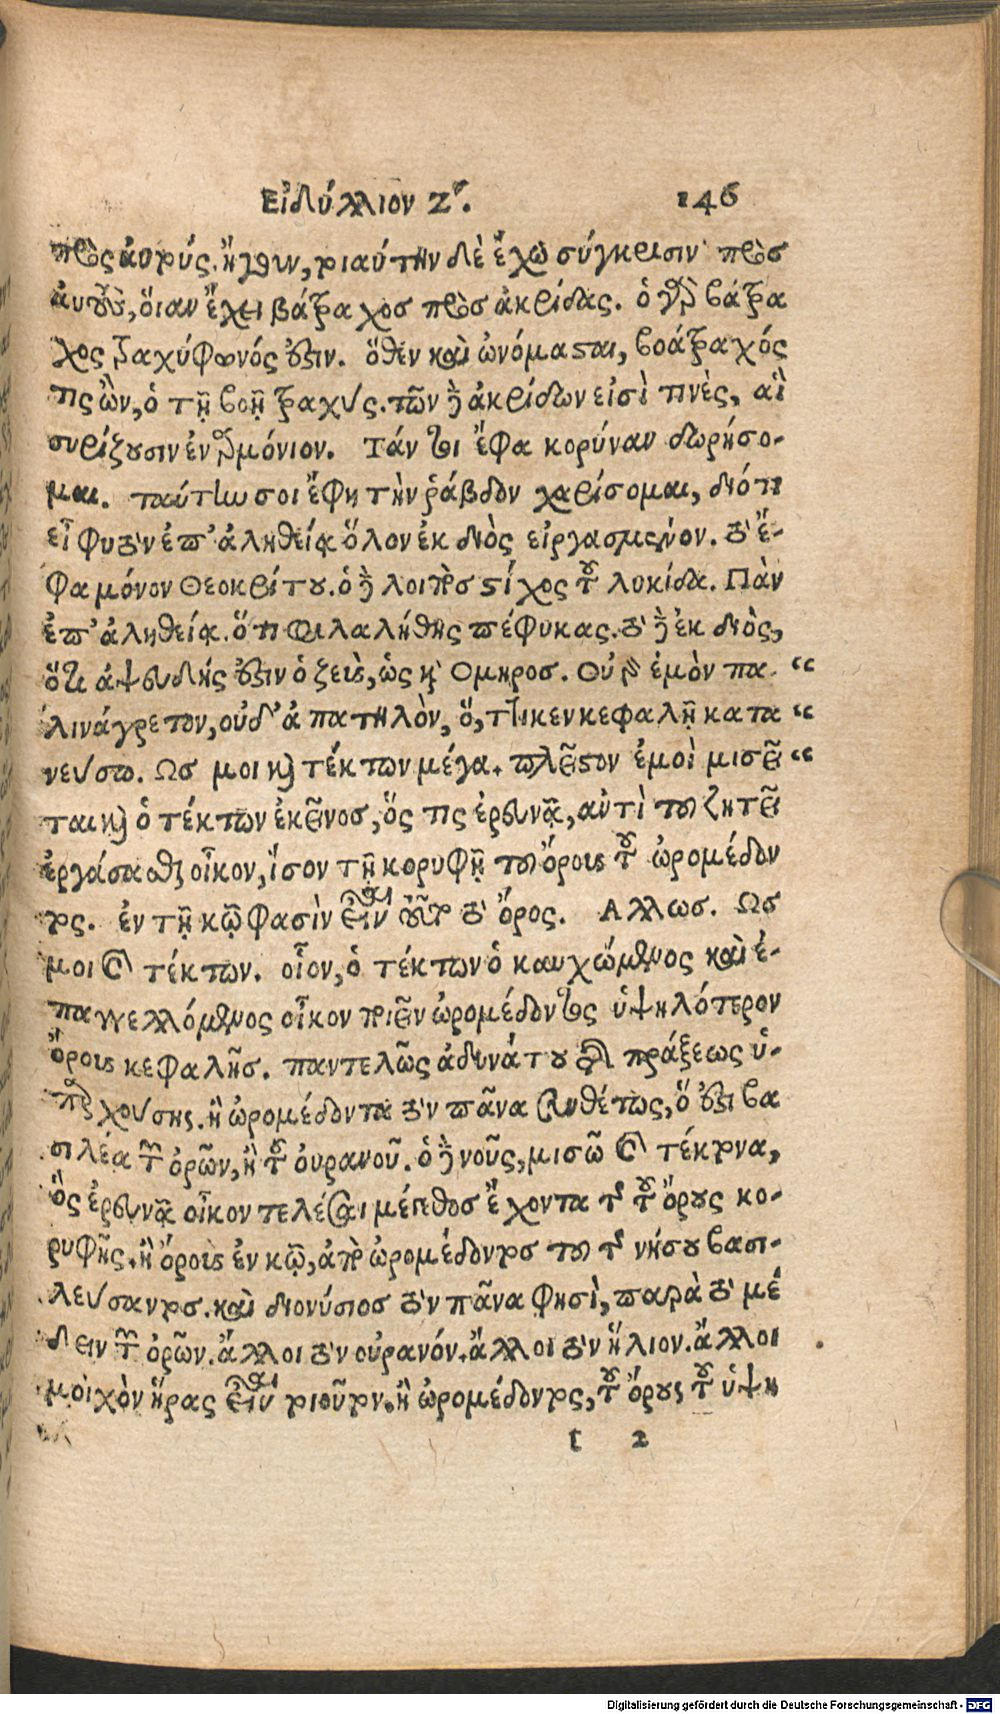 Εἰδύλλιον Ζʹ. 146
πρὸς αὐτούς. ἤγουν, τοιαύτην δὲ ἔχω σύγκρισιν πρὸς
αὐτοὺς, οἵαν ἔχει βάτραχος πρὸς ἀκρίδας. ὁ γὰρ βάτρα
χος τραχύφωνός ἐστιν. ὅθεν καὶ ὠνόμασαι, βοάτραχός
τις ὢν, ὁ τῇ βοῇ τραχύς. τῶν δὲ ἀκρίδων εἰσὶ τινὲς, αἳ
συρίζουσιν ἐναρμόνιον. Τάν τοι ἔφα κορύναν δωρήσο-
μαι. ταύτην σοι ἔφη τὴν ῥάβδον χαρίσομαι, διότι
εἶ φυτὸν ἐπ᾽ ἀληθείᾳ ὅλον ἐκ διὸς εἰργασμένον. τὸ ἔ-
φα μόνον Θεοκρίτου. ὁ δὲ λοιπὸς στίχος τοῦ λυκίδα. Πὰν
ἐπ᾽ ἀληθείᾳ. ὅτι φιλαλήθης πέφυκας. τὸ δὲ ἐκ διὸς,
ὅτι ἀψευδής ἐστιν ὁ ζεὺς, ὡς καὶ Ομηρος. Οὐ γὰρ ἐμὸν πα- “
λινάγρετον, οὐδ᾽ ἀπατηλὸν, ὅ, τι κεν κεφαλῇ κατα “
νεύσω. Ως μοι καὶ τέκτων μέγα. πλεῖστον ἐμοὶ μισεῖ “
ται καὶ ὁ τέκτων ἐκεῖνος, ὅς τις ἐρευνᾷ, αὐτὶ τοῦ ζητεῖ
ἐργάσασθαι οἶκον, ἴσον τῇ κορυφῇ τοῦ ὄρους τοῦ ὠρομέδον
τος. ἐν τῇ κῷ φασὶν εἶναι τοῦτο τὸ ὄρος. Αλλως. Ως
μοι καὶ τέκτων. οἷον, ὁ τέκτων ὁ καυχώμενος καὶ ἐ-
παγγελλόμενος οἶκον ποιεῖν ὠρομέδοντος ὑψηλότερον
ὄρους κεφαλῆς. παντελῶς ἀδυνάτου τῆς πράξεως ὑ-
παρχούσης. ἢ ὠρομέδοντα τὸν πᾶνα ἐυθέτως, ὅ ἐστι βα
σιλέα τῶν ὀρῶν, ἢ τοῦ οὐρανοῦ. ὁ δὲ νοῦς, μισῶ καὶ τέκτονα,
ὃς ἐρευνᾷ οἶκον τελέσαι μέγεθος ἔχοντα τῆς τοῦ ὄρους κο-
ρυφῆς. ἢ ὄρους ἐν κῷ, ἀπὸ ὠρομέδοντος τοῦ τῆς νήσου βασι-
λεύσαντος. καὶ διονύσιος τὸν πᾶνα φησὶ, παρὰ τὸ μέ
δειν τῶν ὀρῶν. ἄλλοι τὸν οὐρανόν. ἄλλοι τὸν ἥλιον. ἄλλοι
μοιχὸν ἥρας εἶναι τοιοῦτον. ἢ ὠρομέδοντος, τοῦ ὄρους τοῦ ὑψη
t 2
Digitalisierung gefördert durch die Deutsche Forschungsgemeinschaft - DFG